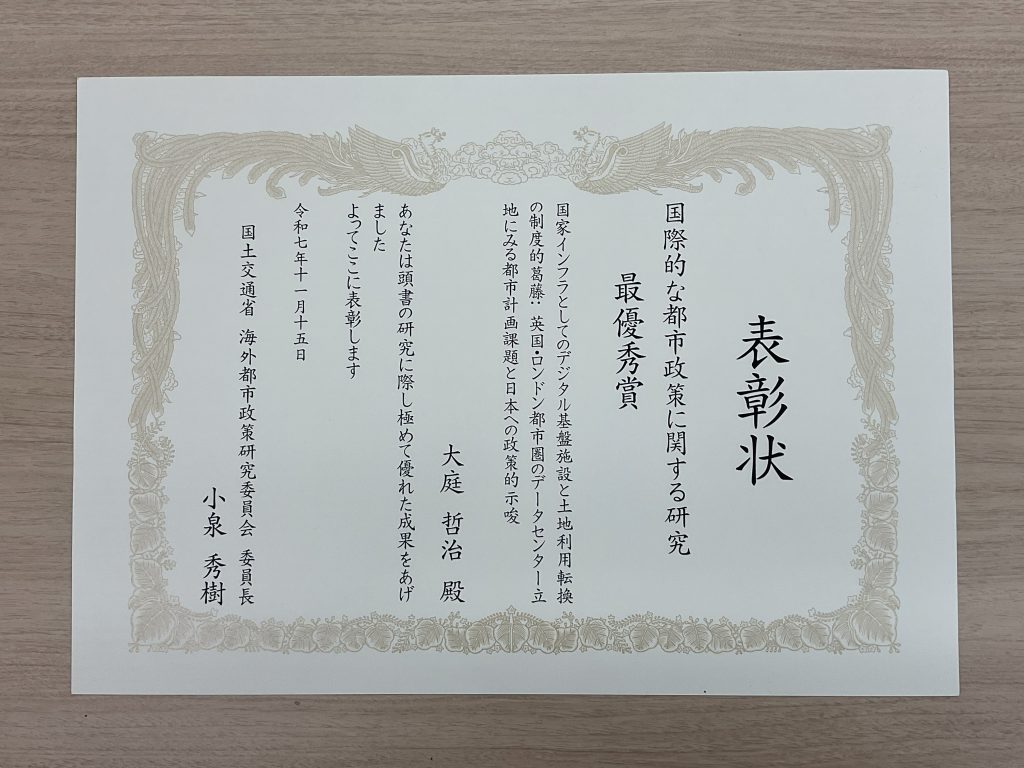 表彰状
国際的な都市政策に関する研究
最優秀賞
国家インフラとしてのデジタル基盤施設と土地利用転換
の制度的葛藤：英国・ロンドン都市圏のデータセンター立
地にみる都市計画課題と日本への政策的示唆
大庭 哲治 殿
あなたは頭書の研究に際し極めて優れた成果をあげ
ました
よってここに表彰します
令和七年十一月十五日
国土交通省 海外都市政策研究委員会 委員長
小泉 秀樹